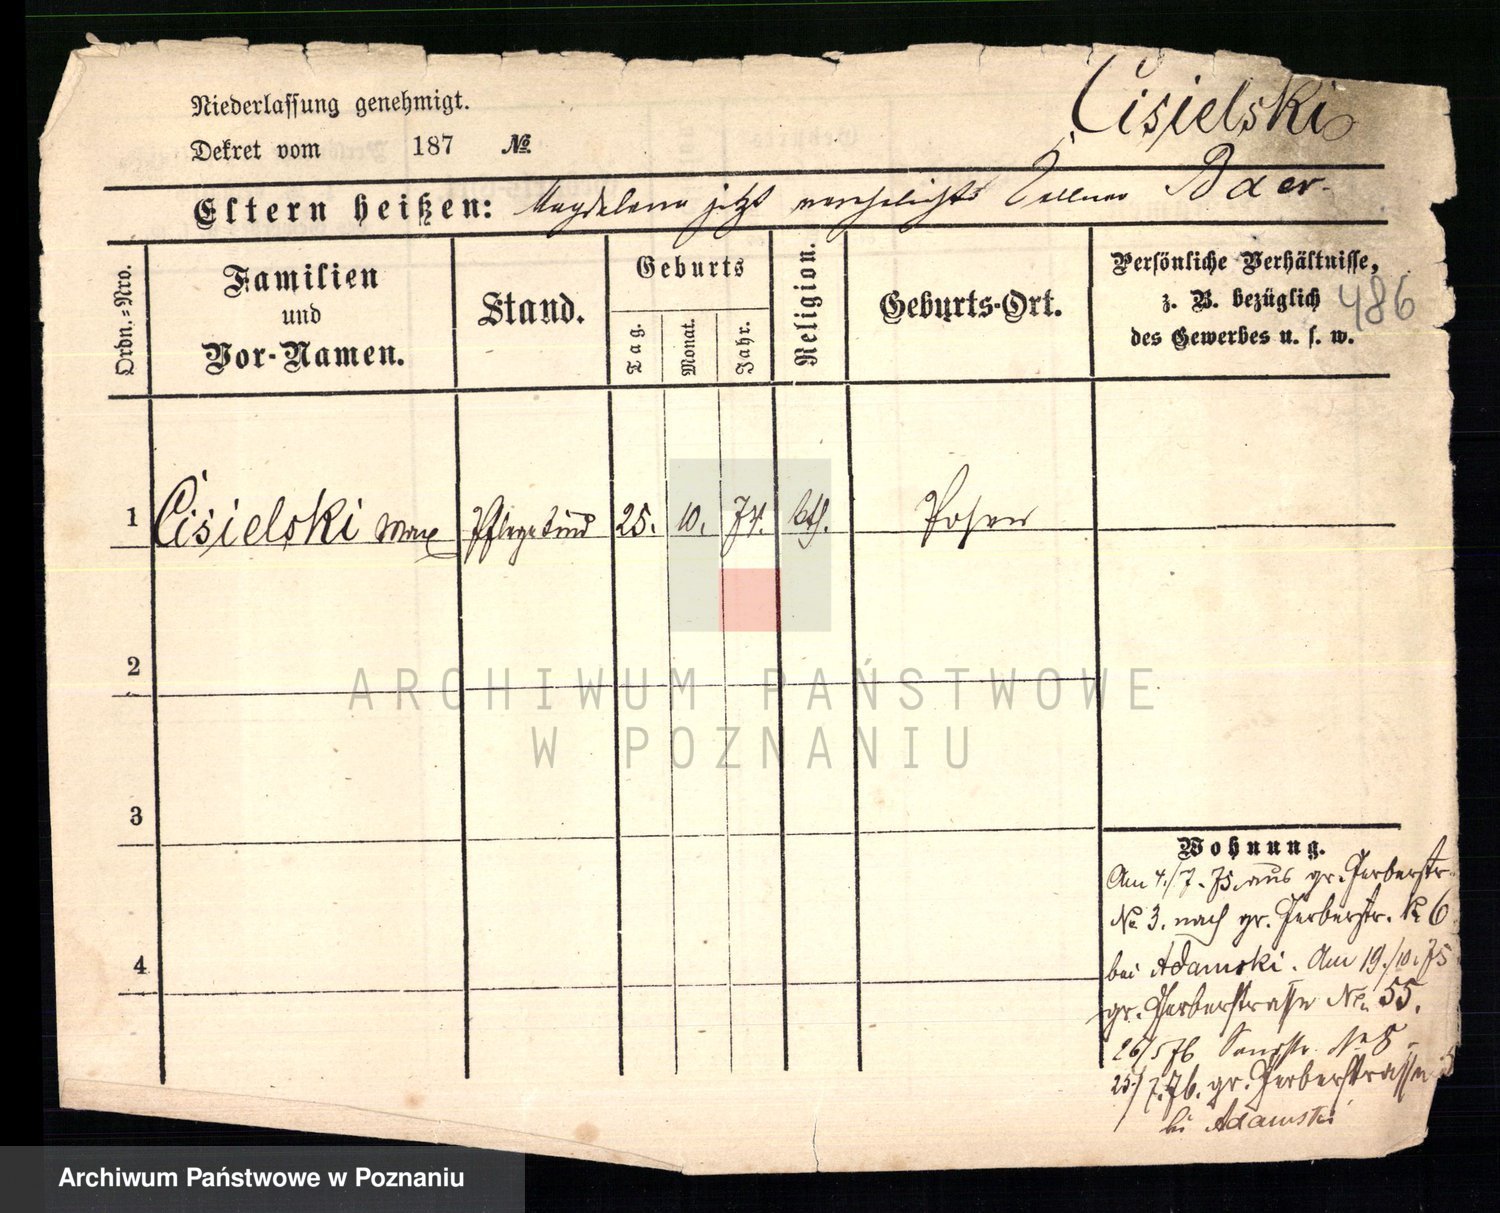 Cisielski
Niederlassung genehmigt.
Dekret vom 187 №
Eltern heißen: Magdalena jetzt verehelichte Kellner Baer.
Ordn.=Nro.
Familien
und
Vor-Namen.
Stand.
Geburts
Tag.
Monat.
Jahr.
Religion.
Geburts-Ort.
Persönliche Verhältnisse,
z. B. bezüglich
des Gewerbes u. s. w.
486
1 Cisielski Max Pflegekind 25. 10. 74. kth. Posen
2
3
4
Wohnung.
Am 4./7. 75. aus gr. Gerberstr.
No 3. nach gr. Gerberstr. No 6
bei Adamski. Am 19./10. 75
gr. Gerberstrasse No. 55.
26/5 76 Sandstr. No 8.
25/7. 76. gr. Gerberstrasse
bei Adamski
ARCHIWUM PAŃSTWOWE
W POZNANIU
Archiwum Państwowe w Poznaniu